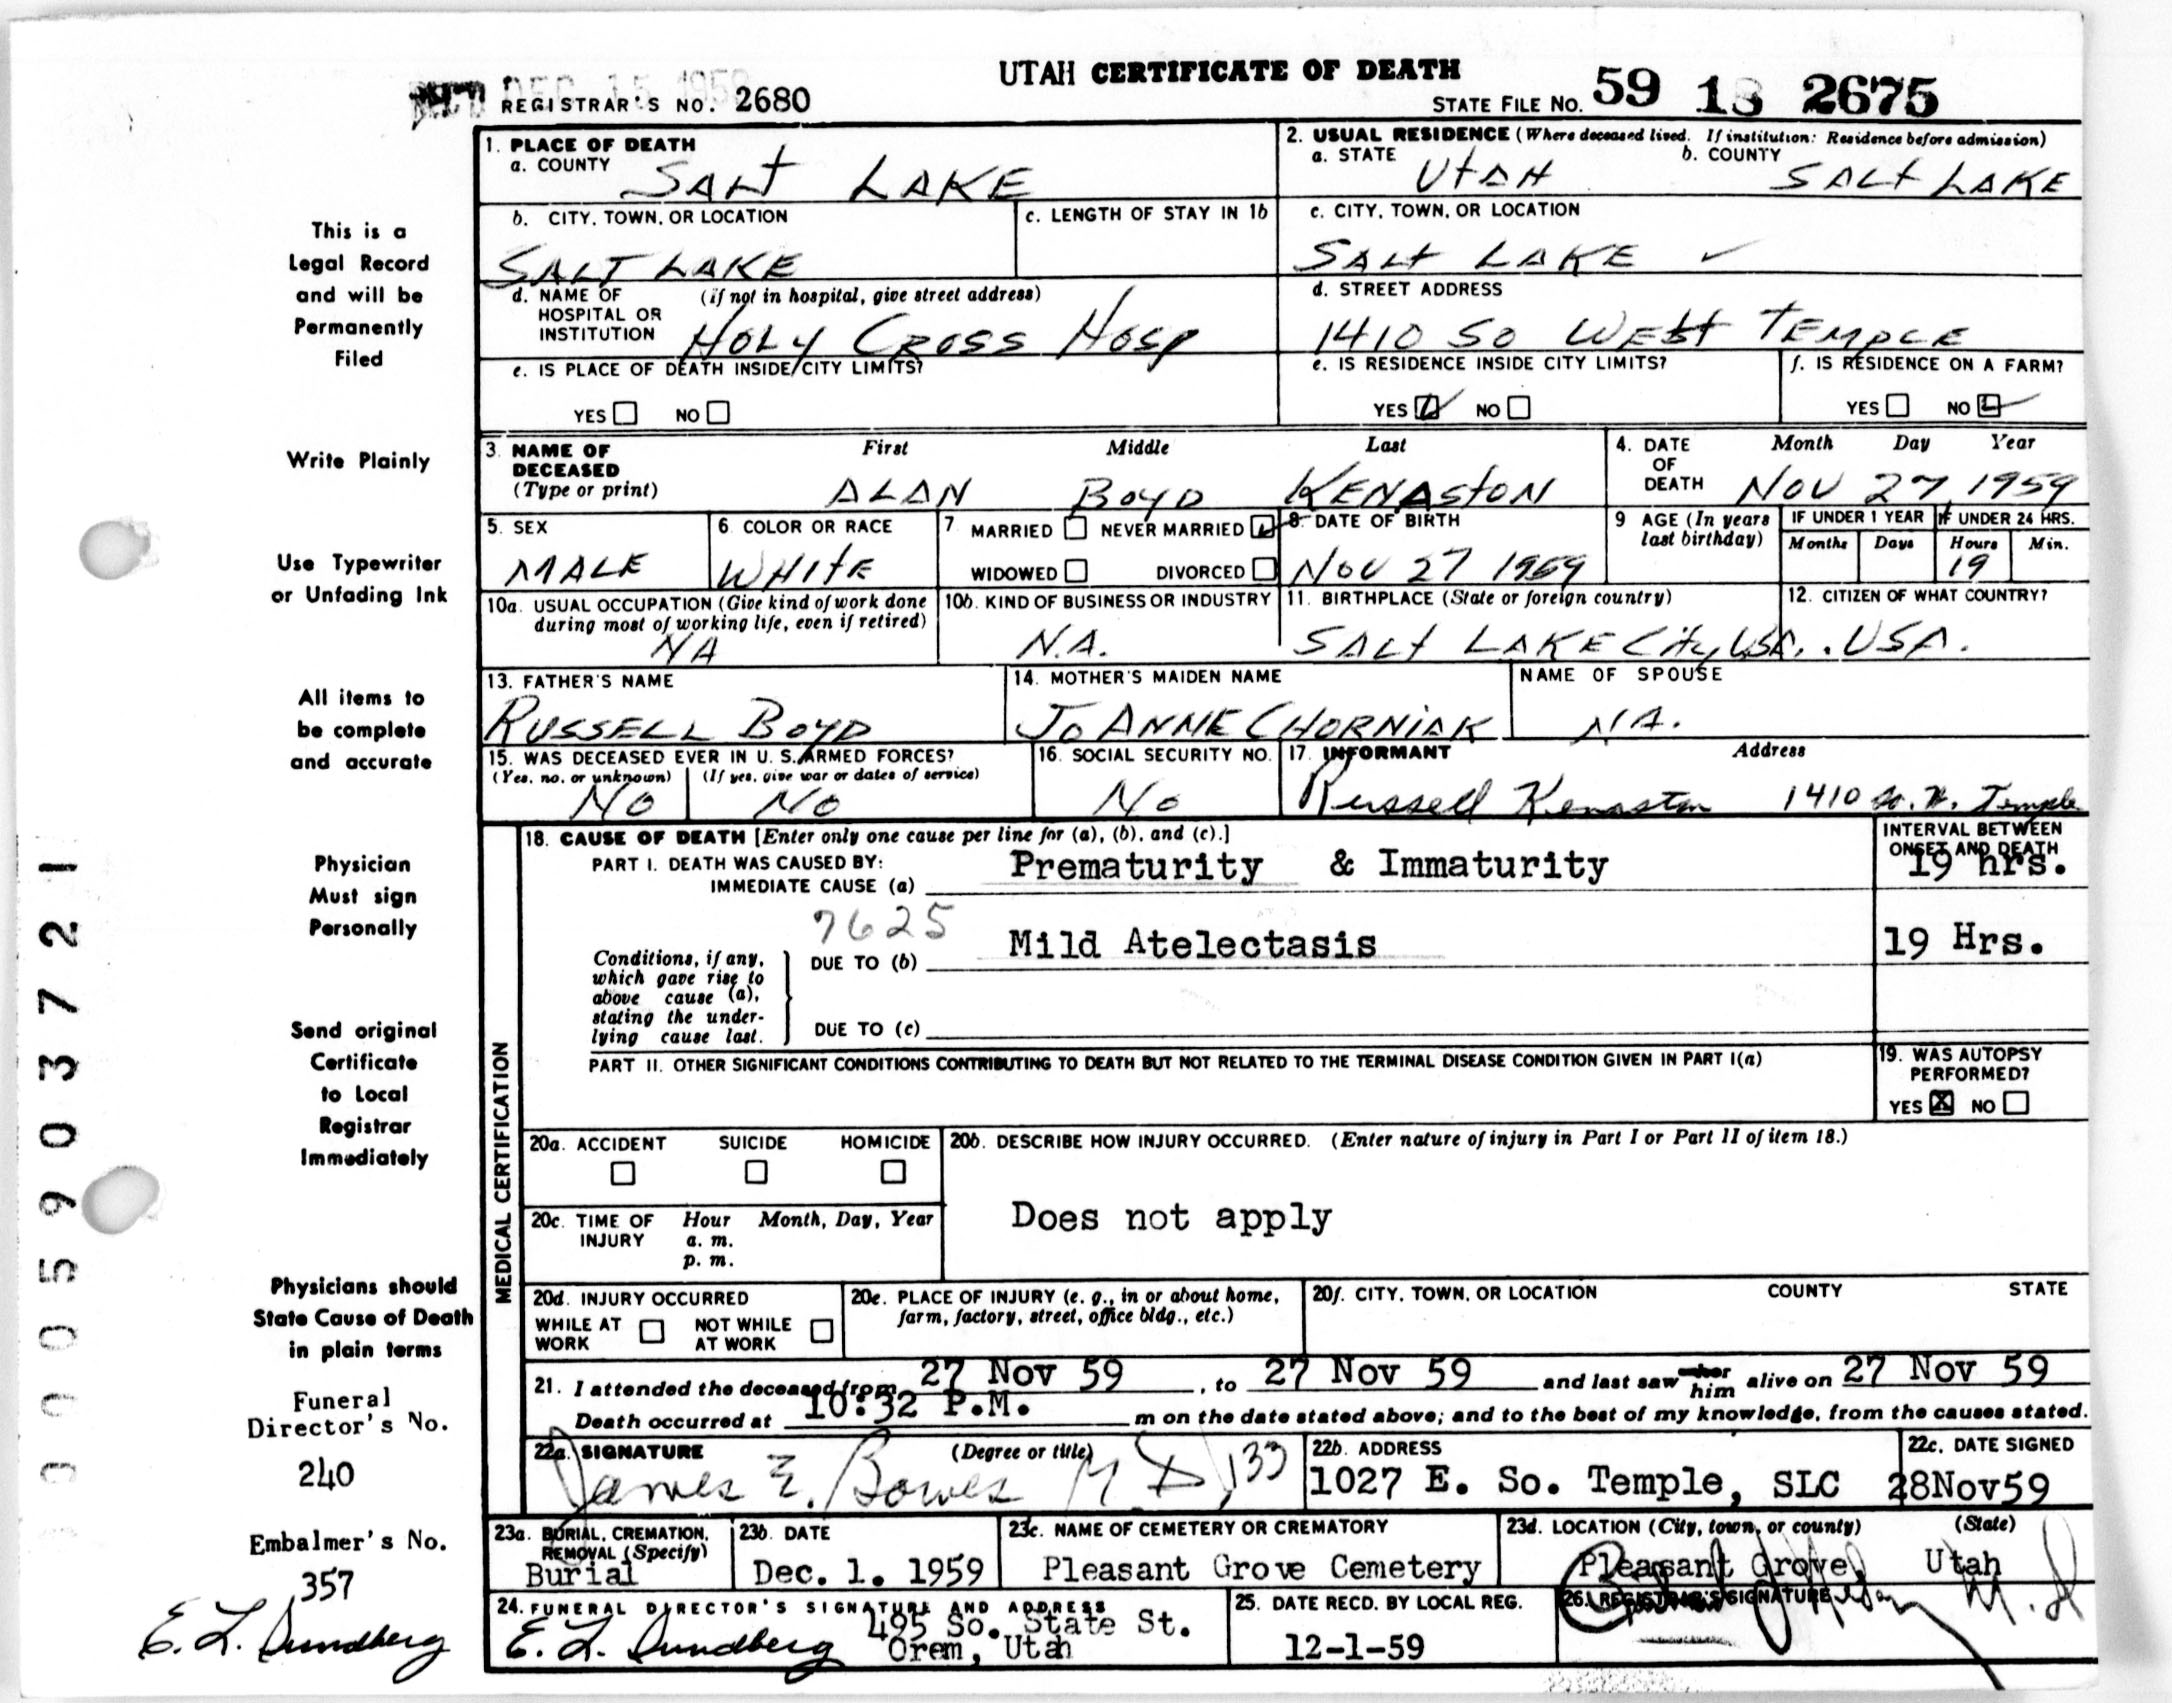 UTAH CERTIFICATE OF DEATH
DEC 15
REGISTRAR'S NO. 2680
STATE FILE NO. 59 18 2675
1. PLACE OF DEATH
a. COUNTY SALT LAKE
2. USUAL RESIDENCE (Where deceased lived. If institution: Residence before admission)
a. STATE UTAH b. COUNTY SALT LAKE
b. CITY, TOWN, OR LOCATION SALT LAKE
c. LENGTH OF STAY IN 1b
c. CITY, TOWN, OR LOCATION
SALT LAKE ✓
d. NAME OF HOSPITAL OR INSTITUTION (if not in hospital, give street address) HOLY CROSS HOSP
d. STREET ADDRESS
1410 SO WEST TEMPLE
e. IS PLACE OF DEATH INSIDE CITY LIMITS?
YES NO
e. IS RESIDENCE INSIDE CITY LIMITS?
YES ✓ NO
f. IS RESIDENCE ON A FARM?
YES NO ✓
3. NAME OF DECEASED (Type or print)
First Middle Last
ALAN BOYD KENASTON
4. DATE OF DEATH
Month Day Year
NOV 27, 1959
5. SEX
MALE
6. COLOR OR RACE
WHITE
7. MARRIED NEVER MARRIED ✓
WIDOWED DIVORCED
8. DATE OF BIRTH
NOV 27 1959
9 AGE (In years last birthday)
IF UNDER 1 YEAR
Months Days
IF UNDER 24 HRS.
Hours Min.
19
10a. USUAL OCCUPATION (Give kind of work done during most of working life, even if retired)
NA
10b. KIND OF BUSINESS OR INDUSTRY
N.A.
11. BIRTHPLACE (State or foreign country)
SALT LAKE City, USA.
12. CITIZEN OF WHAT COUNTRY?
USA.
13. FATHER'S NAME
RUSSELL BOYD
14. MOTHER'S MAIDEN NAME
JO ANNE CHORNIAK
NAME OF SPOUSE
N.A.
15. WAS DECEASED EVER IN U. S. ARMED FORCES?
(Yes, no, or unknown) (If yes, give war or dates of service)
NO NO
16. SOCIAL SECURITY NO.
No
17. INFORMANT Address
Russell Kenaston 1410 So. W. Temple
MEDICAL CERTIFICATION
18. CAUSE OF DEATH [Enter only one cause per line for (a), (b), and (c).]
INTERVAL BETWEEN ONSET AND DEATH
PART I. DEATH WAS CAUSED BY:
IMMEDIATE CAUSE (a) Prematurity & Immaturity 19 hrs.
7625
Conditions, if any, which gave rise to above cause (a), stating the underlying cause last.
DUE TO (b) Mild Atelectasis 19 Hrs.
DUE TO (c)
PART II. OTHER SIGNIFICANT CONDITIONS CONTRIBUTING TO DEATH BUT NOT RELATED TO THE TERMINAL DISEASE CONDITION GIVEN IN PART I(a)
19. WAS AUTOPSY PERFORMED?
YES X NO
20a. ACCIDENT SUICIDE HOMICIDE
20b. DESCRIBE HOW INJURY OCCURRED. (Enter nature of injury in Part I or Part II of item 18.)
Does not apply
20c. TIME OF INJURY
Hour Month, Day, Year
a. m.
p. m.
20d. INJURY OCCURRED
WHILE AT WORK NOT WHILE AT WORK
20e. PLACE OF INJURY (e. g., in or about home, farm, factory, street, office bldg., etc.)
20f. CITY, TOWN, OR LOCATION COUNTY STATE
21. I attended the deceased from 27 Nov 59, to 27 Nov 59 and last saw her him alive on 27 Nov 59
Death occurred at 10:32 P.M. m on the date stated above; and to the best of my knowledge, from the causes stated.
22a. SIGNATURE (Degree or title)
James E. Bowes M.D, 133
22b. ADDRESS
1027 E. So. Temple, SLC
22c. DATE SIGNED
28Nov59
23a. BURIAL, CREMATION, REMOVAL (Specify)
Burial
23b. DATE
Dec. 1. 1959
23c. NAME OF CEMETERY OR CREMATORY
Pleasant Grove Cemetery
23d. LOCATION (City, town, or county) (State)
Pleasant Grove, Utah
24. FUNERAL DIRECTOR'S SIGNATURE AND ADDRESS
E. L. Sundberg 495 So. State St.
Orem, Utah
25. DATE RECD. BY LOCAL REG.
12-1-59
26. REGISTRAR'S SIGNATURE
M.D
This is a
Legal Record
and will be
Permanently
Filed
Write Plainly
Use Typewriter
or Unfading Ink
All items to
be complete
and accurate
Physician
Must sign
Personally
Send original
Certificate
to Local
Registrar
Immediately
Physicians should
State Cause of Death
in plain terms
Funeral
Director's No.
240
Embalmer's No.
357
E. L. Sundberg
0005903721